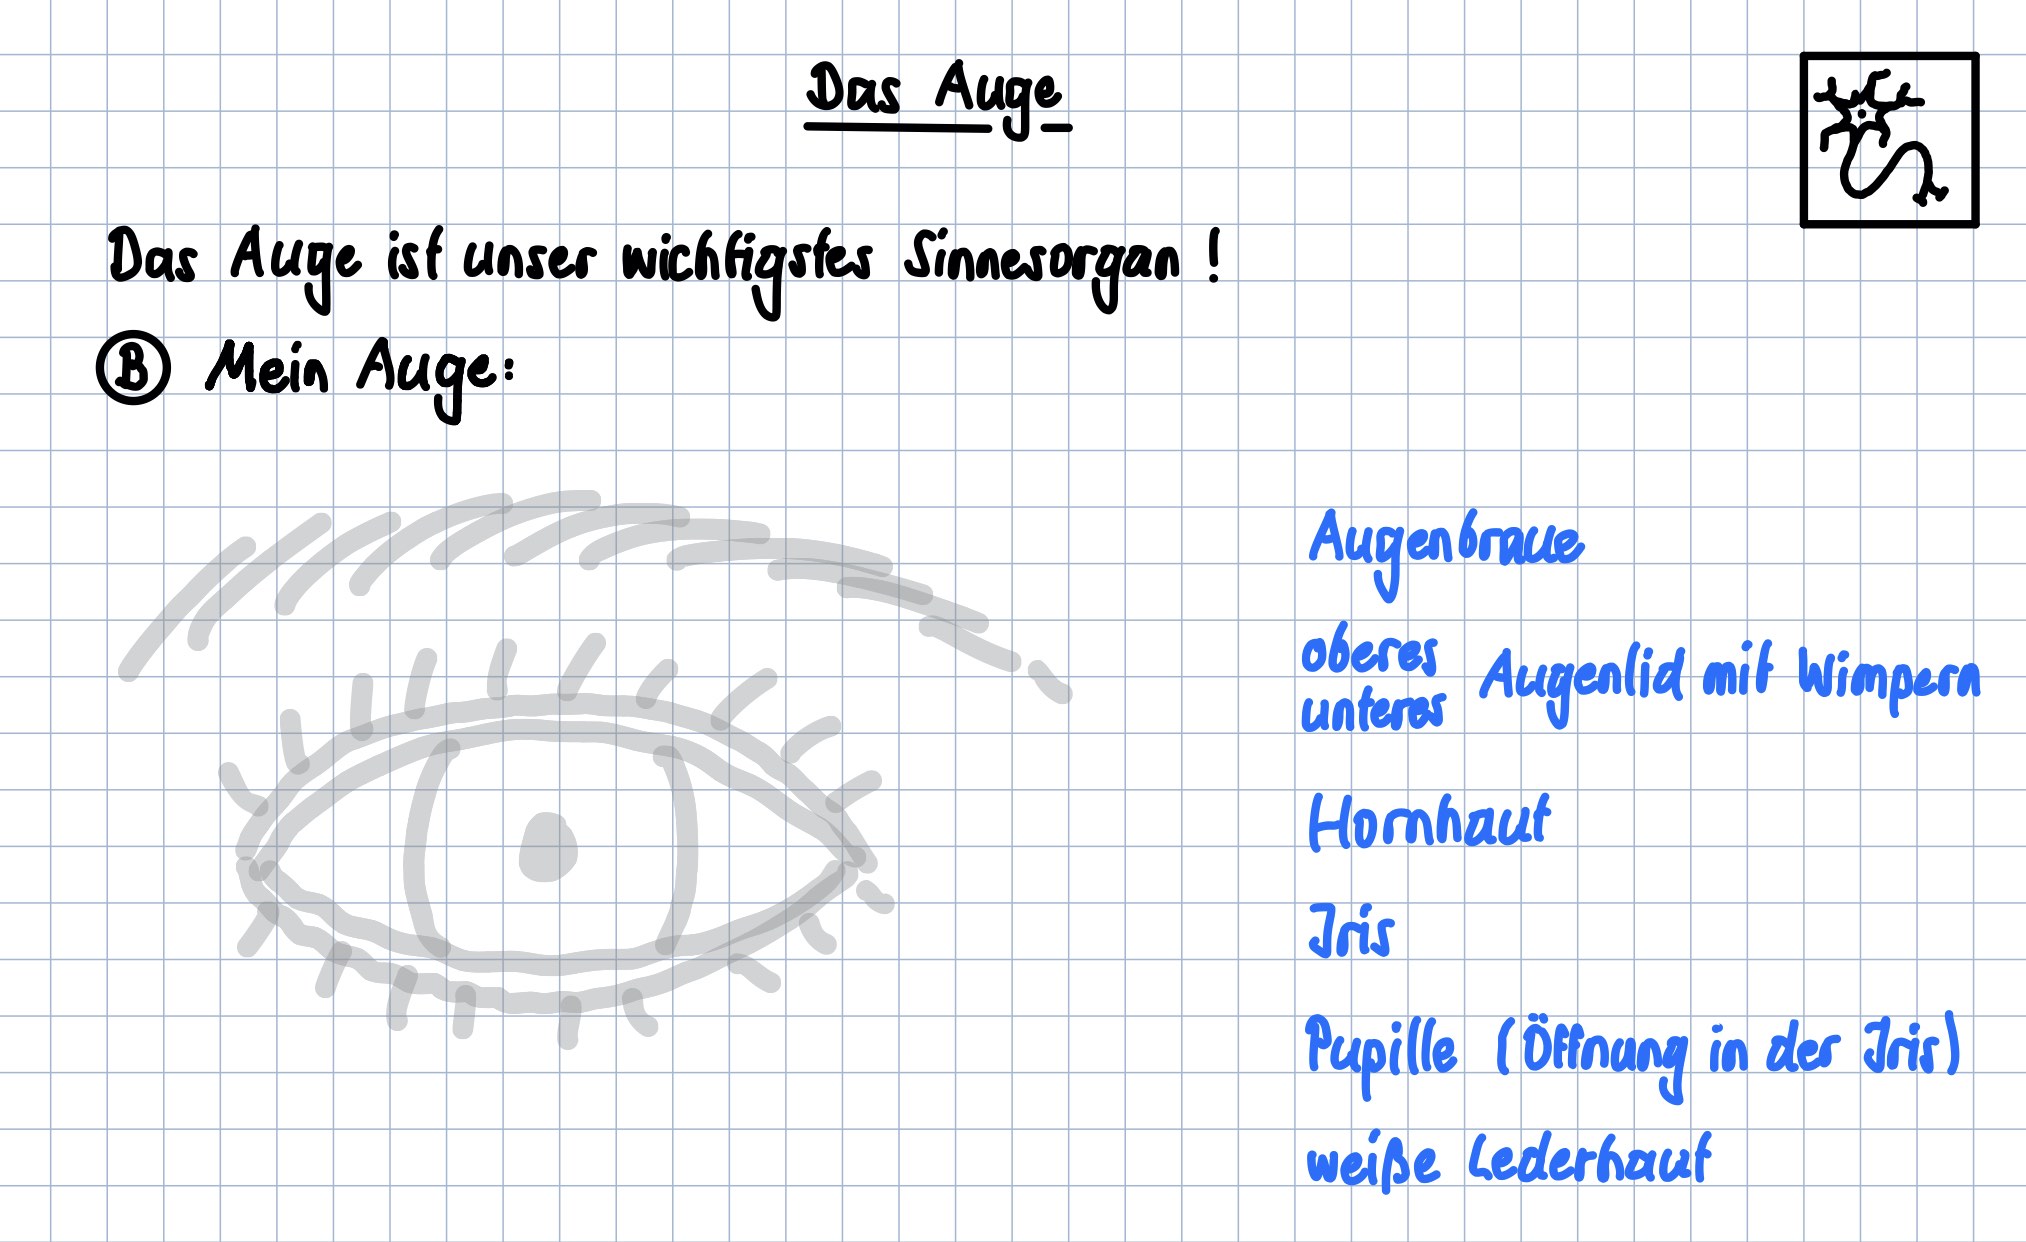 Das Auge
Das Auge ist unser wichtigstes Sinnesorgan !
B Mein Auge:
Augenbraue
oberes
unteres Augenlid mit Wimpern
Hornhaut
Iris
Pupille (Öffnung in der Iris)
weiße Lederhaut